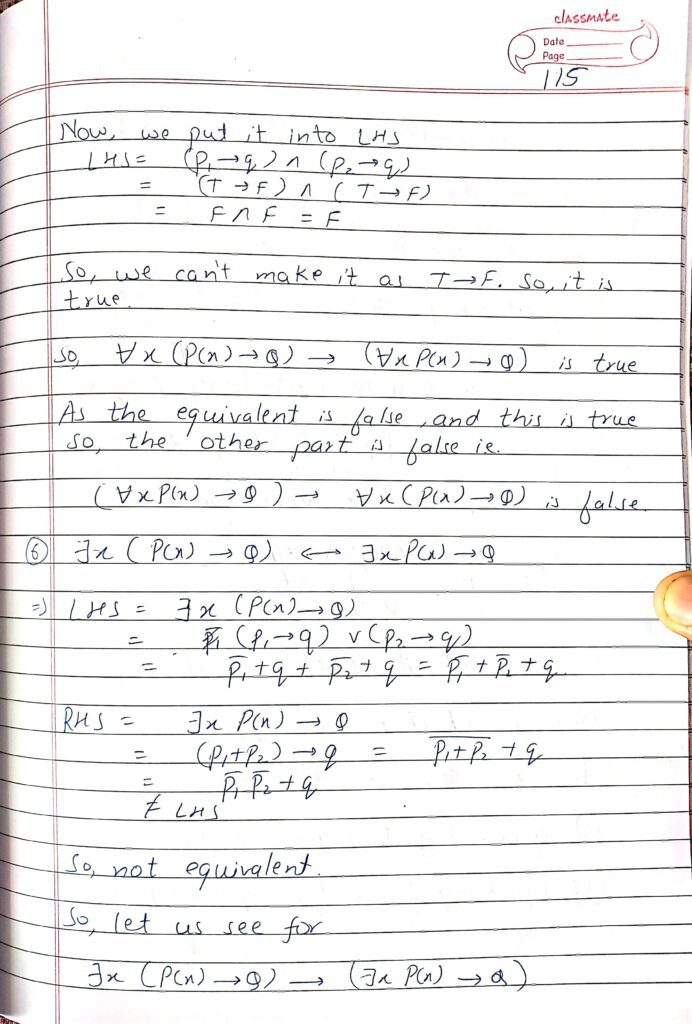 classmate
Date
Page
115
Now, we put it into LHS
LHS = (P₁→q) ∧ (P₂→q)
= (T→F) ∧ (T→F)
= F∧F = F
So, we can't make it as T→F. So, it is
true.
So, ∀x (P(x)→Q) → (∀x P(x)→Q) is true
As the equivalent is false, and this is true
so, the other part is false ie.
(∀x P(x) → Q) → ∀x (P(x)→Q) is false.
⑥ ∃x (P(x) → Q) ⟷ ∃x P(x)→Q
⇒) LHS = ∃x (P(x)→Q)
= (P₁→q) ∨ (P₂→q)
= P̅₁+q + P̅₂+q = P̅₁+P̅₂+q
RHS = ∃x P(x) → Q
= (P₁+P₂)→q = \overline{P₁+P₂} + q
= P̅₁ P̅₂+q
≠ LHS
So, not equivalent.
So, let us see for
∃x (P(x)→Q) → (∃x P(x) → Q)